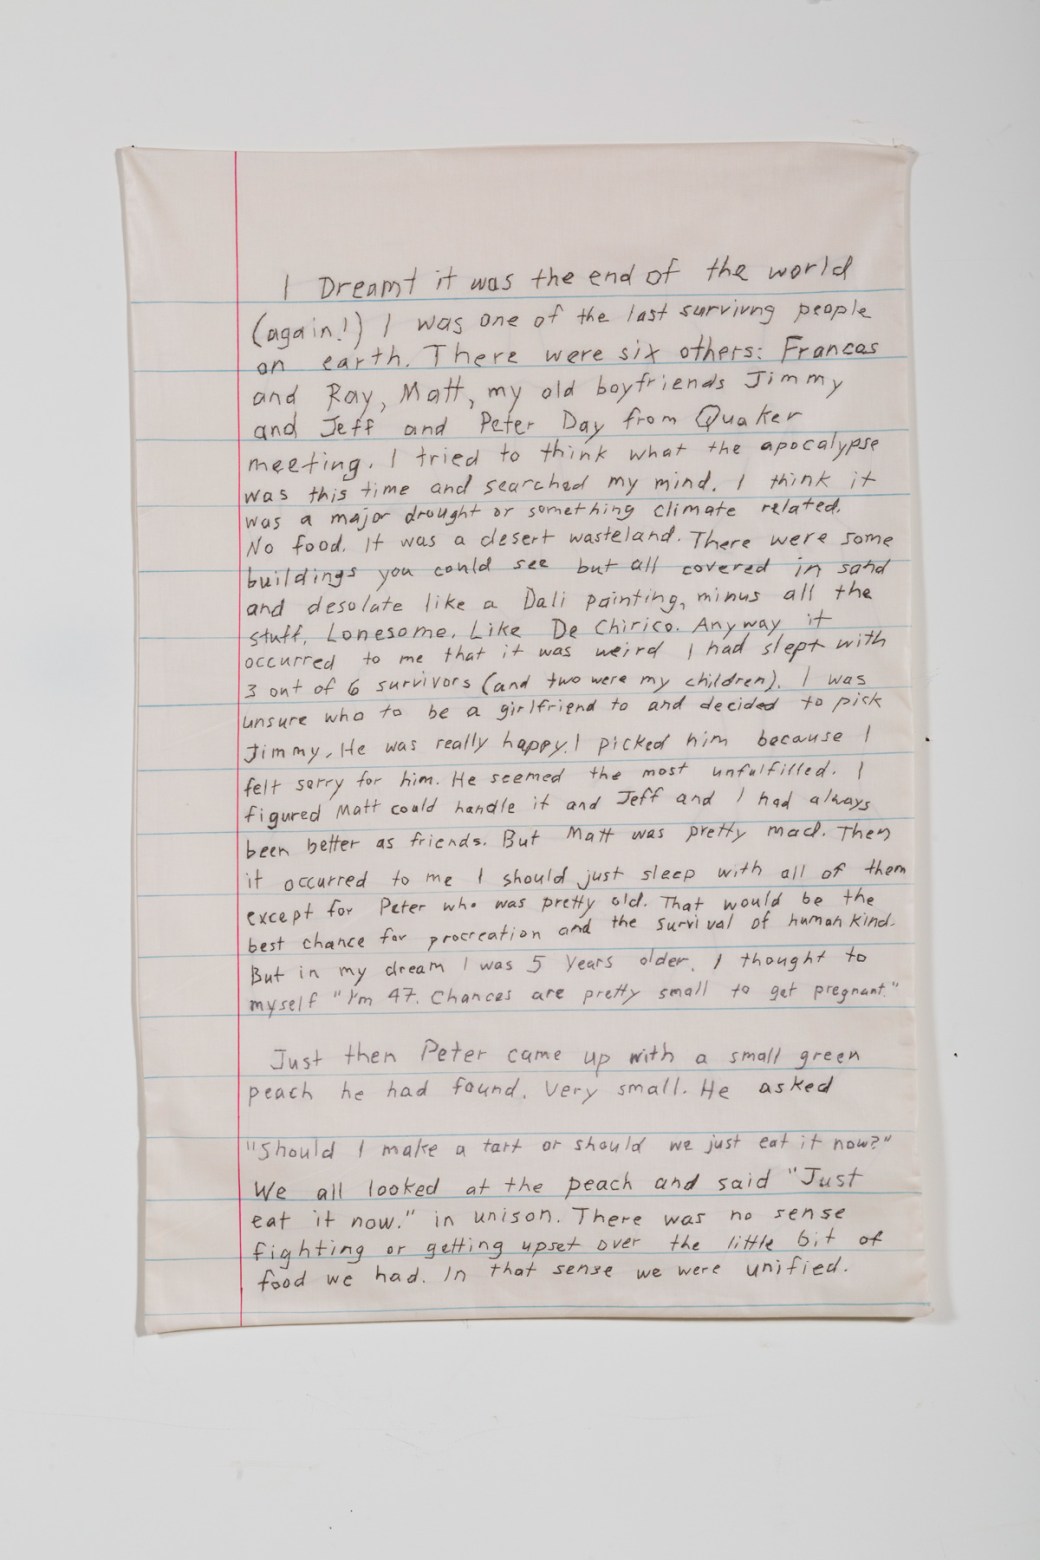 I Dreamt it was the end of the world
(again!) I was one of the last survivng people
on earth. There were six others: Frances
and Ray, Matt, my old boyfriends Jimmy
and Jeff and Peter Day from Quaker
meeting. I tried to think what the apocalypse
was this time and searched my mind. I think it
was a major drought or something climate related.
No food. It was a desert wasteland. There were some
buildings you could see but all covered in sand
and desolate like a Dali painting, minus all the
stuff. Lonesome. Like De Chirico. Anyway it
occurred to me that it was weird I had slept with
3 out of 6 survivors (and two were my children). I was
unsure who to be a girlfriend to and decided to pick
Jimmy. He was really happy. I picked him because I
felt sorry for him. He seemed the most unfulfilled. I
figured Matt could handle it and Jeff and I had always
been better as friends. But Matt was pretty mad. Then
it occurred to me I should just sleep with all of them
except for Peter who was pretty old. That would be the
best chance for procreation and the survival of human kind.
But in my dream I was 5 years older. I thought to
myself "I'm 47. Chances are pretty small to get pregnant."
Just then Peter came up with a small green
peach he had found. Very small. He asked
"Should I make a tart or should we just eat it now?"
We all looked at the peach and said "Just
eat it now." in unison. There was no sense
fighting or getting upset over the little bit of
food we had. In that sense we were unified.